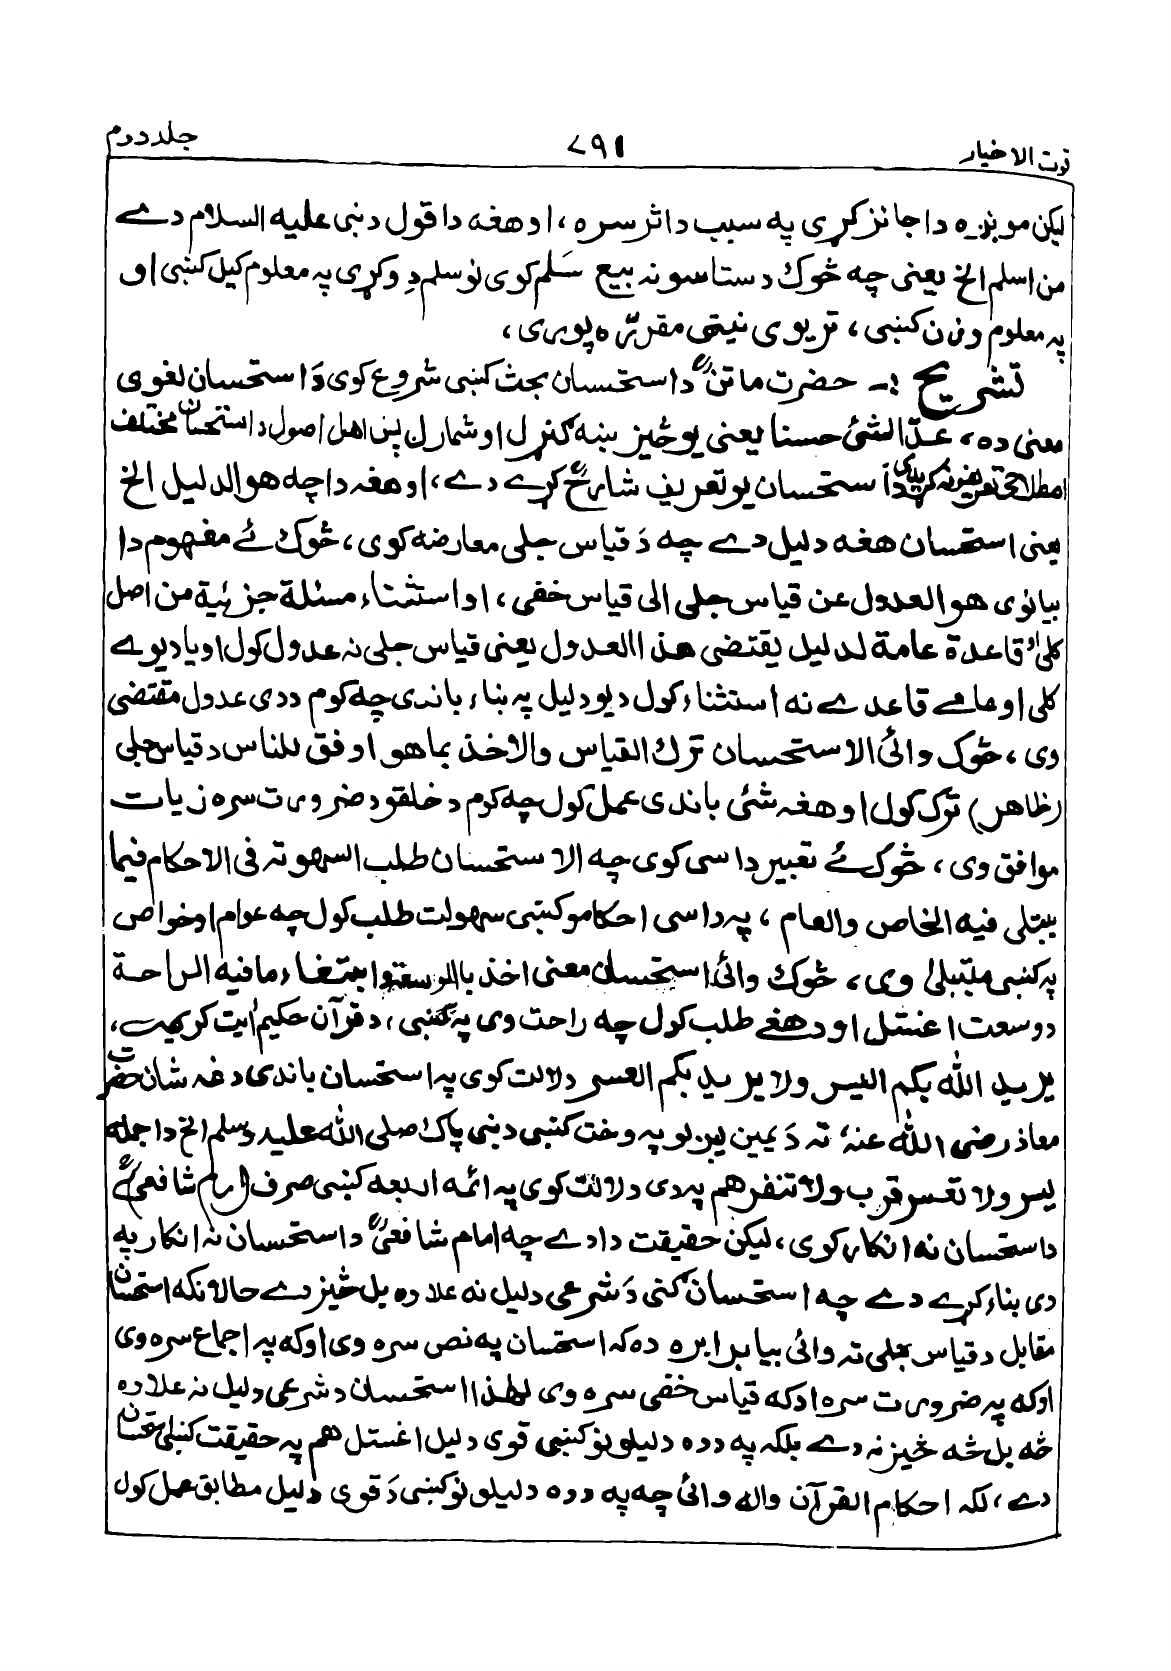 قوت الاخیار ۷۹۱ جلد دوم
لیکن مونږه دا جائز کړی په سبب داثر سره، او هغه دا قول د نبی علیه السلام دے
من اسلم الخ یعنی چه څوک دستاسو نه بیع سَلم کوی نو سلم دِ وکړی په معلوم کیل کښی او
په معلوم وزن کښی، تر یوی نیټی مقررّه پوری،
تشریح :- حضرت ماتنؒ داستحسان بحث کښی شروع کوی دَاستحسان لغوی
معنی ده، عدّ الشئ حسنا یعنی یو څیز ښه گنړل او شمارل پس اهل اصول داستحسان مختلف
اصطلاحی تعریفونه کړیدی دَاستحسان یو تعریف شارحؒ کړے دے، او هغه دا چه هو الدلیل الخ
یعنی استحسان هغه دلیل دے چه دَ قیاس جلی معارضه کوی، څوک ئے مفهوم دا
بیانوی هو العدول عن قیاس جلی الی قیاس خفی، او استثناء مسئلة جزئیة من اصل
کلی او قاعدة عامة لدلیل یقتضی هذا العدول یعنی قیاس جلی نه عدول کول او یا دیوے
کلی او عامے قاعدے نه استثناء کول دیو دلیل په بناء باندی چه کوم ددی عدول مقتضی
وی، څوک وائی الاستحسان ترک القیاس والاخذ بما هو اوفق للناس د قیاس جلی
(ظاهر) ترک کول او هغه شئ باندی عمل کول چه کوم د خلقو د ضرورت سره زیات
موافق وی، څوک ئے تعبیر داسی کوی چه الاستحسان طلب السهوته فی الاحکام فیما
یبتلی فیه الخاص والعام، په داسی احکامو کښی سهولت طلب کول چه عوام او خواص
په کښی مبتلیٰ وی، څوک وائی استحسان معنی اخذ بالوسعة وابتغاء ما فیه الراحة
د وسعت اغستل او دهغے طلب کول چه راحت وی په کښی، د قرآن حکیم ایت کریمه،
یرید الله بکم الیسر ولا یرید بکم العسر دلالت کوی په استحسان باندی دغه شان حضرت
معاذ رضی الله عنه ته دَ یمین لیږلو په وخت کښی د نبی پاک صلی الله علیه وسلم الخ دا جمله
یسر ولا تعسر قرب ولا تنفر هم په دی دلالت کوی په ائمه اربعه کښی صرف امام شافعیؒ
داستحسان نه انکار کوی، لیکن حقیقت دادے چه امام شافعیؒ داستحسان نه انکار په
دی بناء کړے دے چه استحسان گنی دَ شرعی دلیل نه علاوه بل څیز دے حالانکه استحسان
مقابل د قیاس جلی ته وائی بیا برابره ده که استحسان په نص سره وی او که په اجماع سره وی
او که په ضرورت سره او که قیاس خفی سره وی لهذا استحسان د شرعی دلیل نه علاوه
څه بل څه څیز نه دے بلکه په دوه دلیلونو کښی قوی دلیل اغستل هم په حقیقت کښی استحسان
دے، لکه احکام القرآن واله وائی چه په دوه دلیلونو کښی دَ قوی دلیل مطابق عمل کول